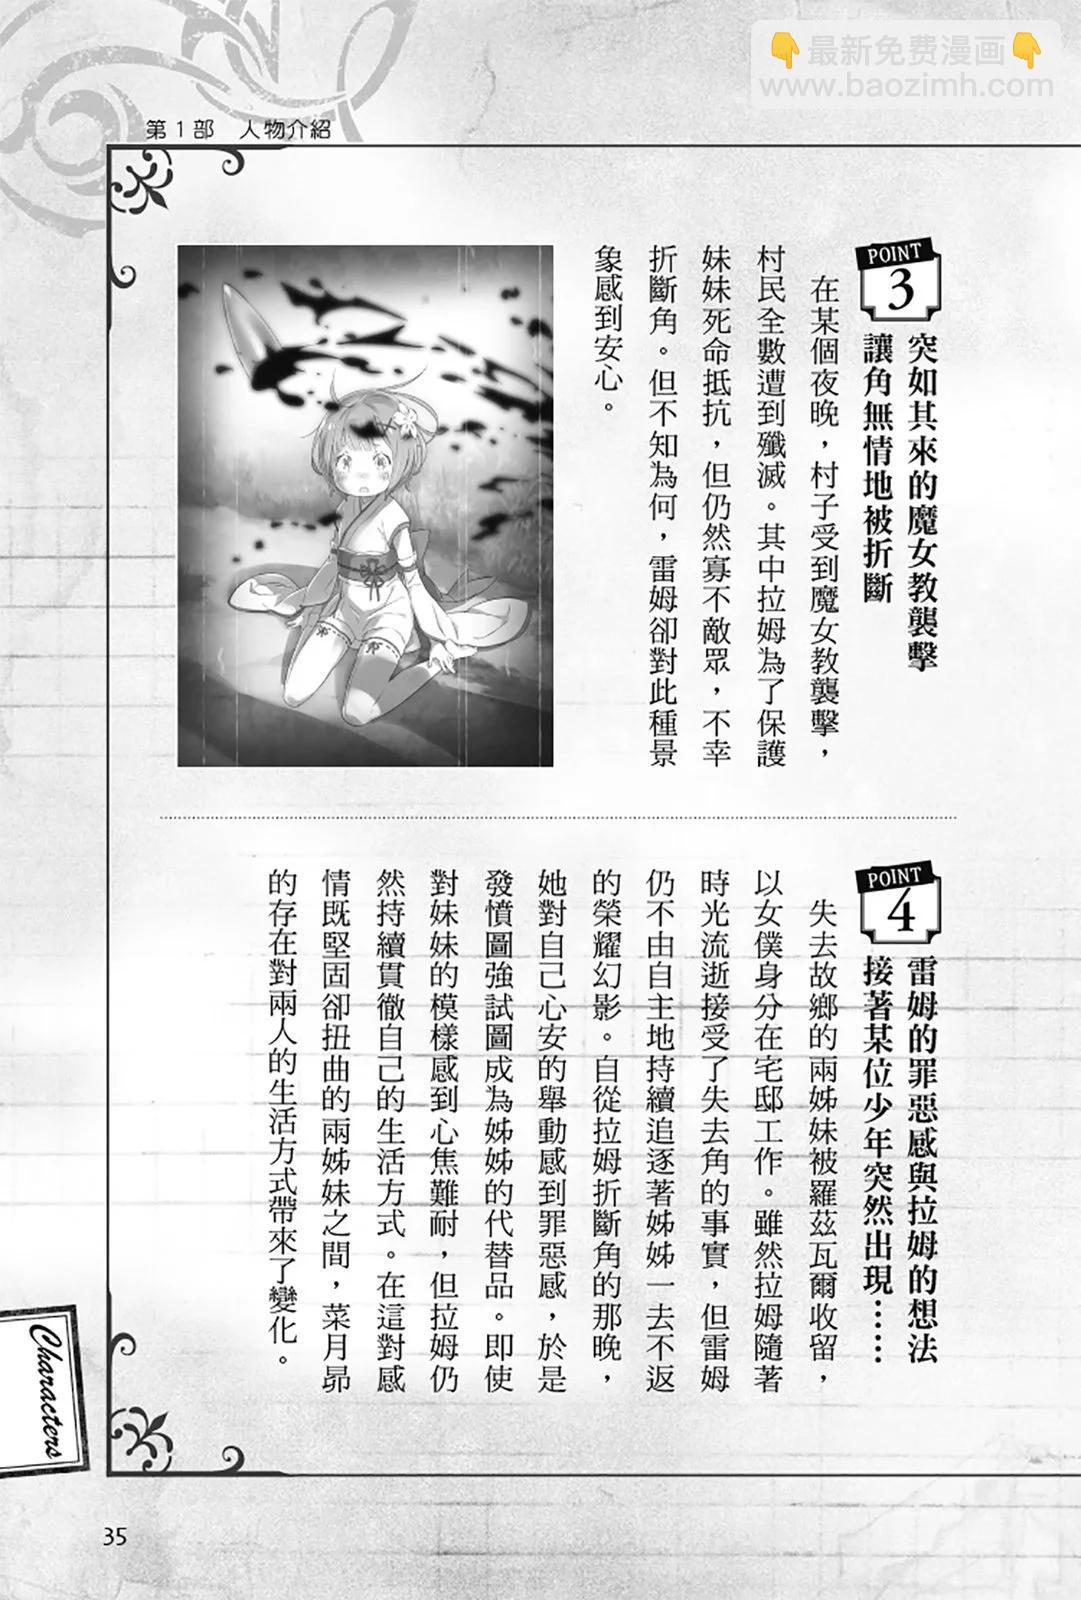 👇最新免费漫画👇
www.baozimh.com
第1部 人物介紹
POINT
3
突如其來的魔女教襲擊
讓角無情地被折斷
在某個夜晚，村子受到魔女教襲擊，
村民全數遭到殲滅。其中拉姆為了保護
妹妹死命抵抗，但仍然寡不敵眾，不幸
折斷角。但不知為何，雷姆卻對此種景
象感到安心。
POINT
4
雷姆的罪惡感與拉姆的想法
接著某位少年突然出現……
失去故鄉的兩姊妹被羅茲瓦爾收留，
以女僕身分在宅邸工作。雖然拉姆隨著
時光流逝接受了失去角的事實，但雷姆
仍不由自主地持續追逐著姊姊一去不返
的榮耀幻影。自從拉姆折斷角的那晚，
她對自己心安的舉動感到罪惡感，於是
發憤圖強試圖成為姊姊的代替品。即使
對妹妹的模樣感到心焦難耐，但拉姆仍
然持續貫徹自己的生活方式。在這對感
情既堅固卻扭曲的兩姊妹之間，菜月昴
的存在對兩人的生活方式帶來了變化。
Characters
35